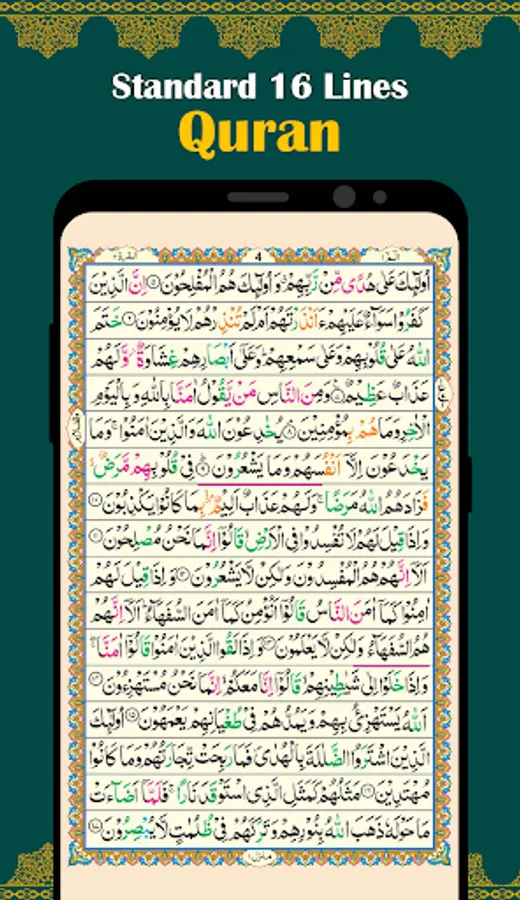 Standard 16 Lines
Quran
البقرة ٢
4
الٓمّٓ ١
اُولٰٓئِكَ عَلٰى هُدًى مِّنْ رَّبِّهِمْ ۗ وَاُولٰٓئِكَ هُمُ الْمُفْلِحُوْنَ ۝٥ اِنَّ الَّذِيْنَ
كَفَرُوْا سَوَآءٌ عَلَيْهِمْ ءَاَنْذَرْتَهُمْ اَمْ لَمْ تُنْذِرْهُمْ لَا يُؤْمِنُوْنَ ۝٦ خَتَمَ
اللّٰهُ عَلٰى قُلُوْبِهِمْ وَعَلٰى سَمْعِهِمْ ؕ وَعَلٰٓى اَبْصَارِهِمْ غِشَاوَةٌ ۫ وَّلَهُمْ
عَذَابٌ عَظِيْمٌ ۝٧ وَمِنَ النَّاسِ مَنْ يَّقُوْلُ اٰمَنَّا بِاللّٰهِ وَبِالْيَوْمِ
الْاٰخِرِ وَمَا هُمْ بِمُؤْمِنِيْنَ ۝٨ يُخٰدِعُوْنَ اللّٰهَ وَالَّذِيْنَ اٰمَنُوْا ۚ وَمَا
يَخْدَعُوْنَ اِلَّآ اَنْفُسَهُمْ وَمَا يَشْعُرُوْنَ ۝٩ فِيْ قُلُوْبِهِمْ مَّرَضٌ ۙ
فَزَادَهُمُ اللّٰهُ مَرَضًا ۚ وَلَهُمْ عَذَابٌ اَلِيْمٌۢ ۙ بِمَا كَانُوْا يَكْذِبُوْنَ ۝١٠
وَاِذَا قِيْلَ لَهُمْ لَا تُفْسِدُوْا فِي الْاَرْضِ ۙ قَالُوْٓا اِنَّمَا نَحْنُ مُصْلِحُوْنَ ۝١١
اَلَآ اِنَّهُمْ هُمُ الْمُفْسِدُوْنَ وَلٰكِنْ لَّا يَشْعُرُوْنَ ۝١٢ وَاِذَا قِيْلَ لَهُمْ
اٰمِنُوْا كَمَآ اٰمَنَ النَّاسُ قَالُوْٓا اَنُؤْمِنُ كَمَآ اٰمَنَ السُّفَهَآءُ ؕ اَلَآ اِنَّهُمْ
هُمُ السُّفَهَآءُ وَلٰكِنْ لَّا يَعْلَمُوْنَ ۝١٣ وَاِذَا لَقُوا الَّذِيْنَ اٰمَنُوْا قَالُوْٓا اٰمَنَّا ۚ
وَاِذَا خَلَوْا اِلٰى شَيٰطِيْنِهِمْ ۙ قَالُوْٓا اِنَّا مَعَكُمْ ۙ اِنَّمَا نَحْنُ مُسْتَهْزِءُوْنَ ۝١٤
اَللّٰهُ يَسْتَهْزِئُ بِهِمْ وَيَمُدُّهُمْ فِيْ طُغْيَانِهِمْ يَعْمَهُوْنَ ۝١٥ اُولٰٓئِكَ
الَّذِيْنَ اشْتَرَوُا الضَّلٰلَةَ بِالْهُدٰى ۪ فَمَا رَبِحَتْ تِّجَارَتُهُمْ وَمَا كَانُوْا
مُهْتَدِيْنَ ۝١٦ مَثَلُهُمْ كَمَثَلِ الَّذِي اسْتَوْقَدَ نَارًا ۚ فَلَمَّآ اَضَآءَتْ
مَا حَوْلَهٗ ذَهَبَ اللّٰهُ بِنُوْرِهِمْ وَتَرَكَهُمْ فِيْ ظُلُمٰتٍ لَّا يُبْصِرُوْنَ ۝١٧
منزل ١